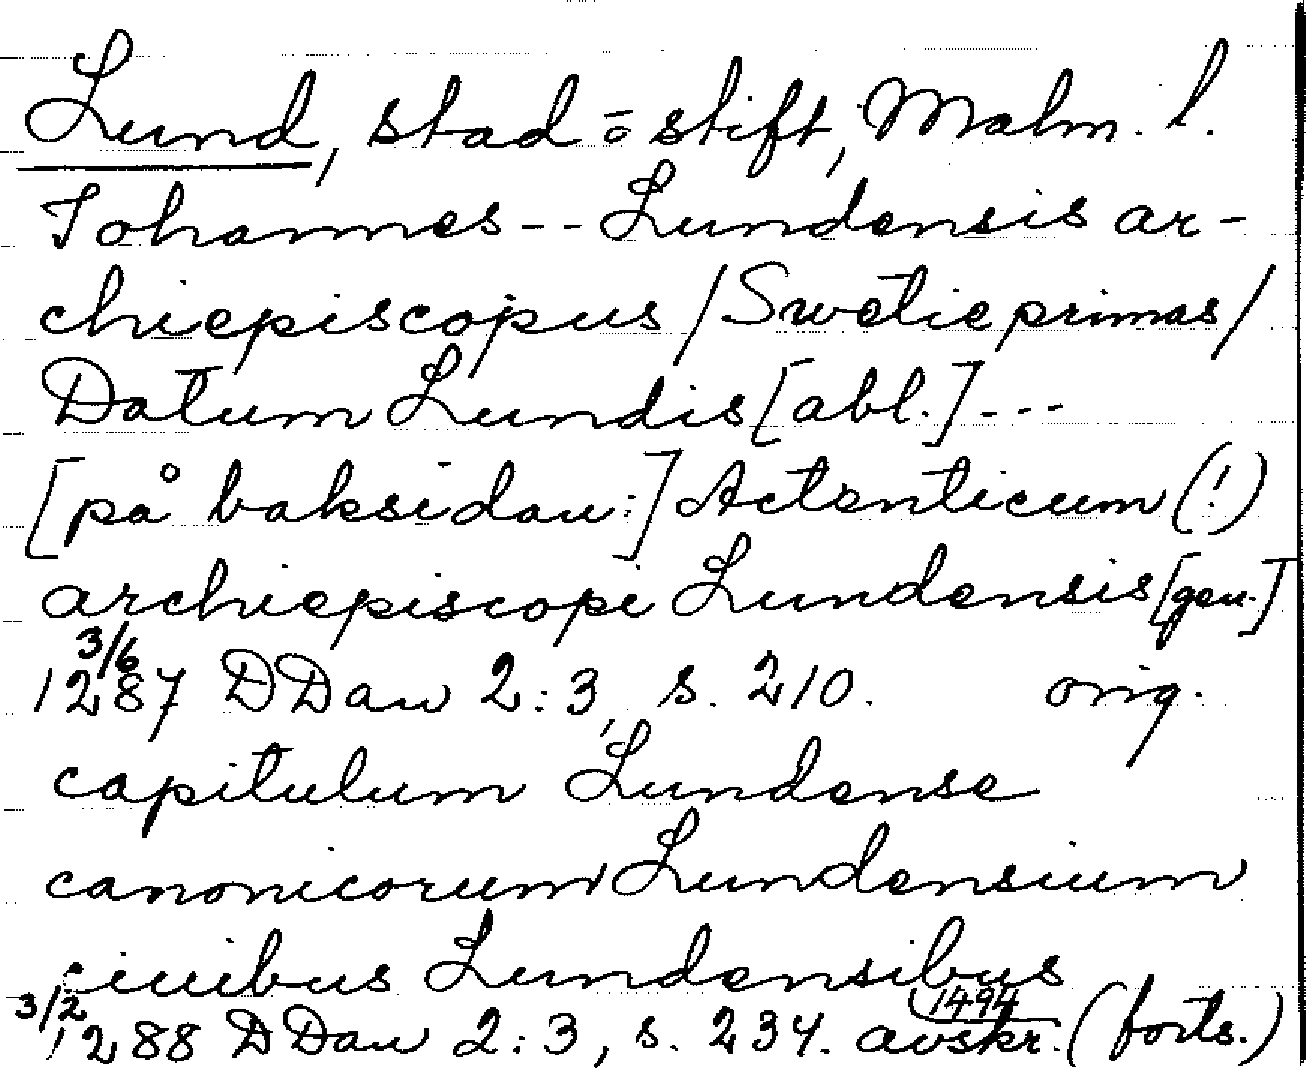 Lund, stad ō stift, Malm. l.
Johannes -- Lundensis ar-
chiepiscopus / Swetie primas /
Datum Lundis [abl.] ---
[på baksidan:] Actenticum (!)
archiepiscopi Lundensis [gen.]
3/6
1287 DDan 2:3, s. 210. orig.
capitulum Lundense
canonicorum Lundensium
ciuibus Lundensibus
3/2 1494
1288 DDan 2:3, s. 234. avskr. (forts.)